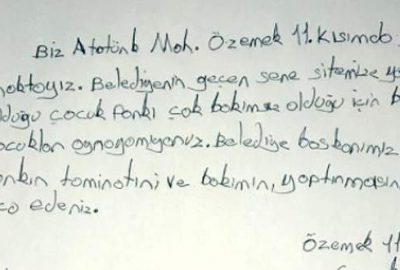 Biz Atatürk Mah. Özemek 11. Kısımda
maktayız. Belediyenin geçen sene sitemize ya
duğu çocuk Parkı çok bakımsız olduğu için b
ocukları oynayamıyoruz. Belediye başkanımız
arkın taminatını ve bakımın, yaptırmasın
ca ederiz.
Özemek 11